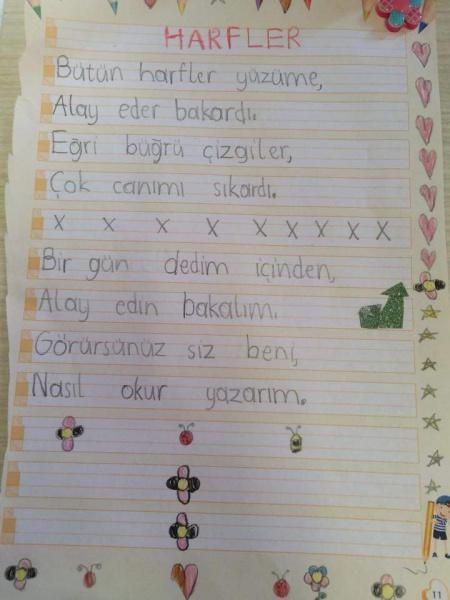 HARFLER
Bütün harfler yüzüme,
Alay eder bakardı.
Eğri büğrü çizgiler,
Çok canımı sıkardı.
X X X X X X X X X
Bir gün dedim içinden,
Alay edin bakalım.
Görürsünüz siz beni,
Nasıl okur yazarım.
11